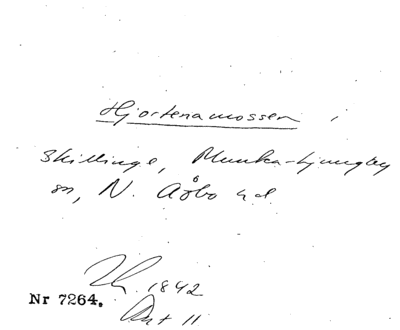 Hjortenamossen i
Skillinge, Munka-Ljungby
sn, N. Åsbo hd
1842
Nr 7264.
11